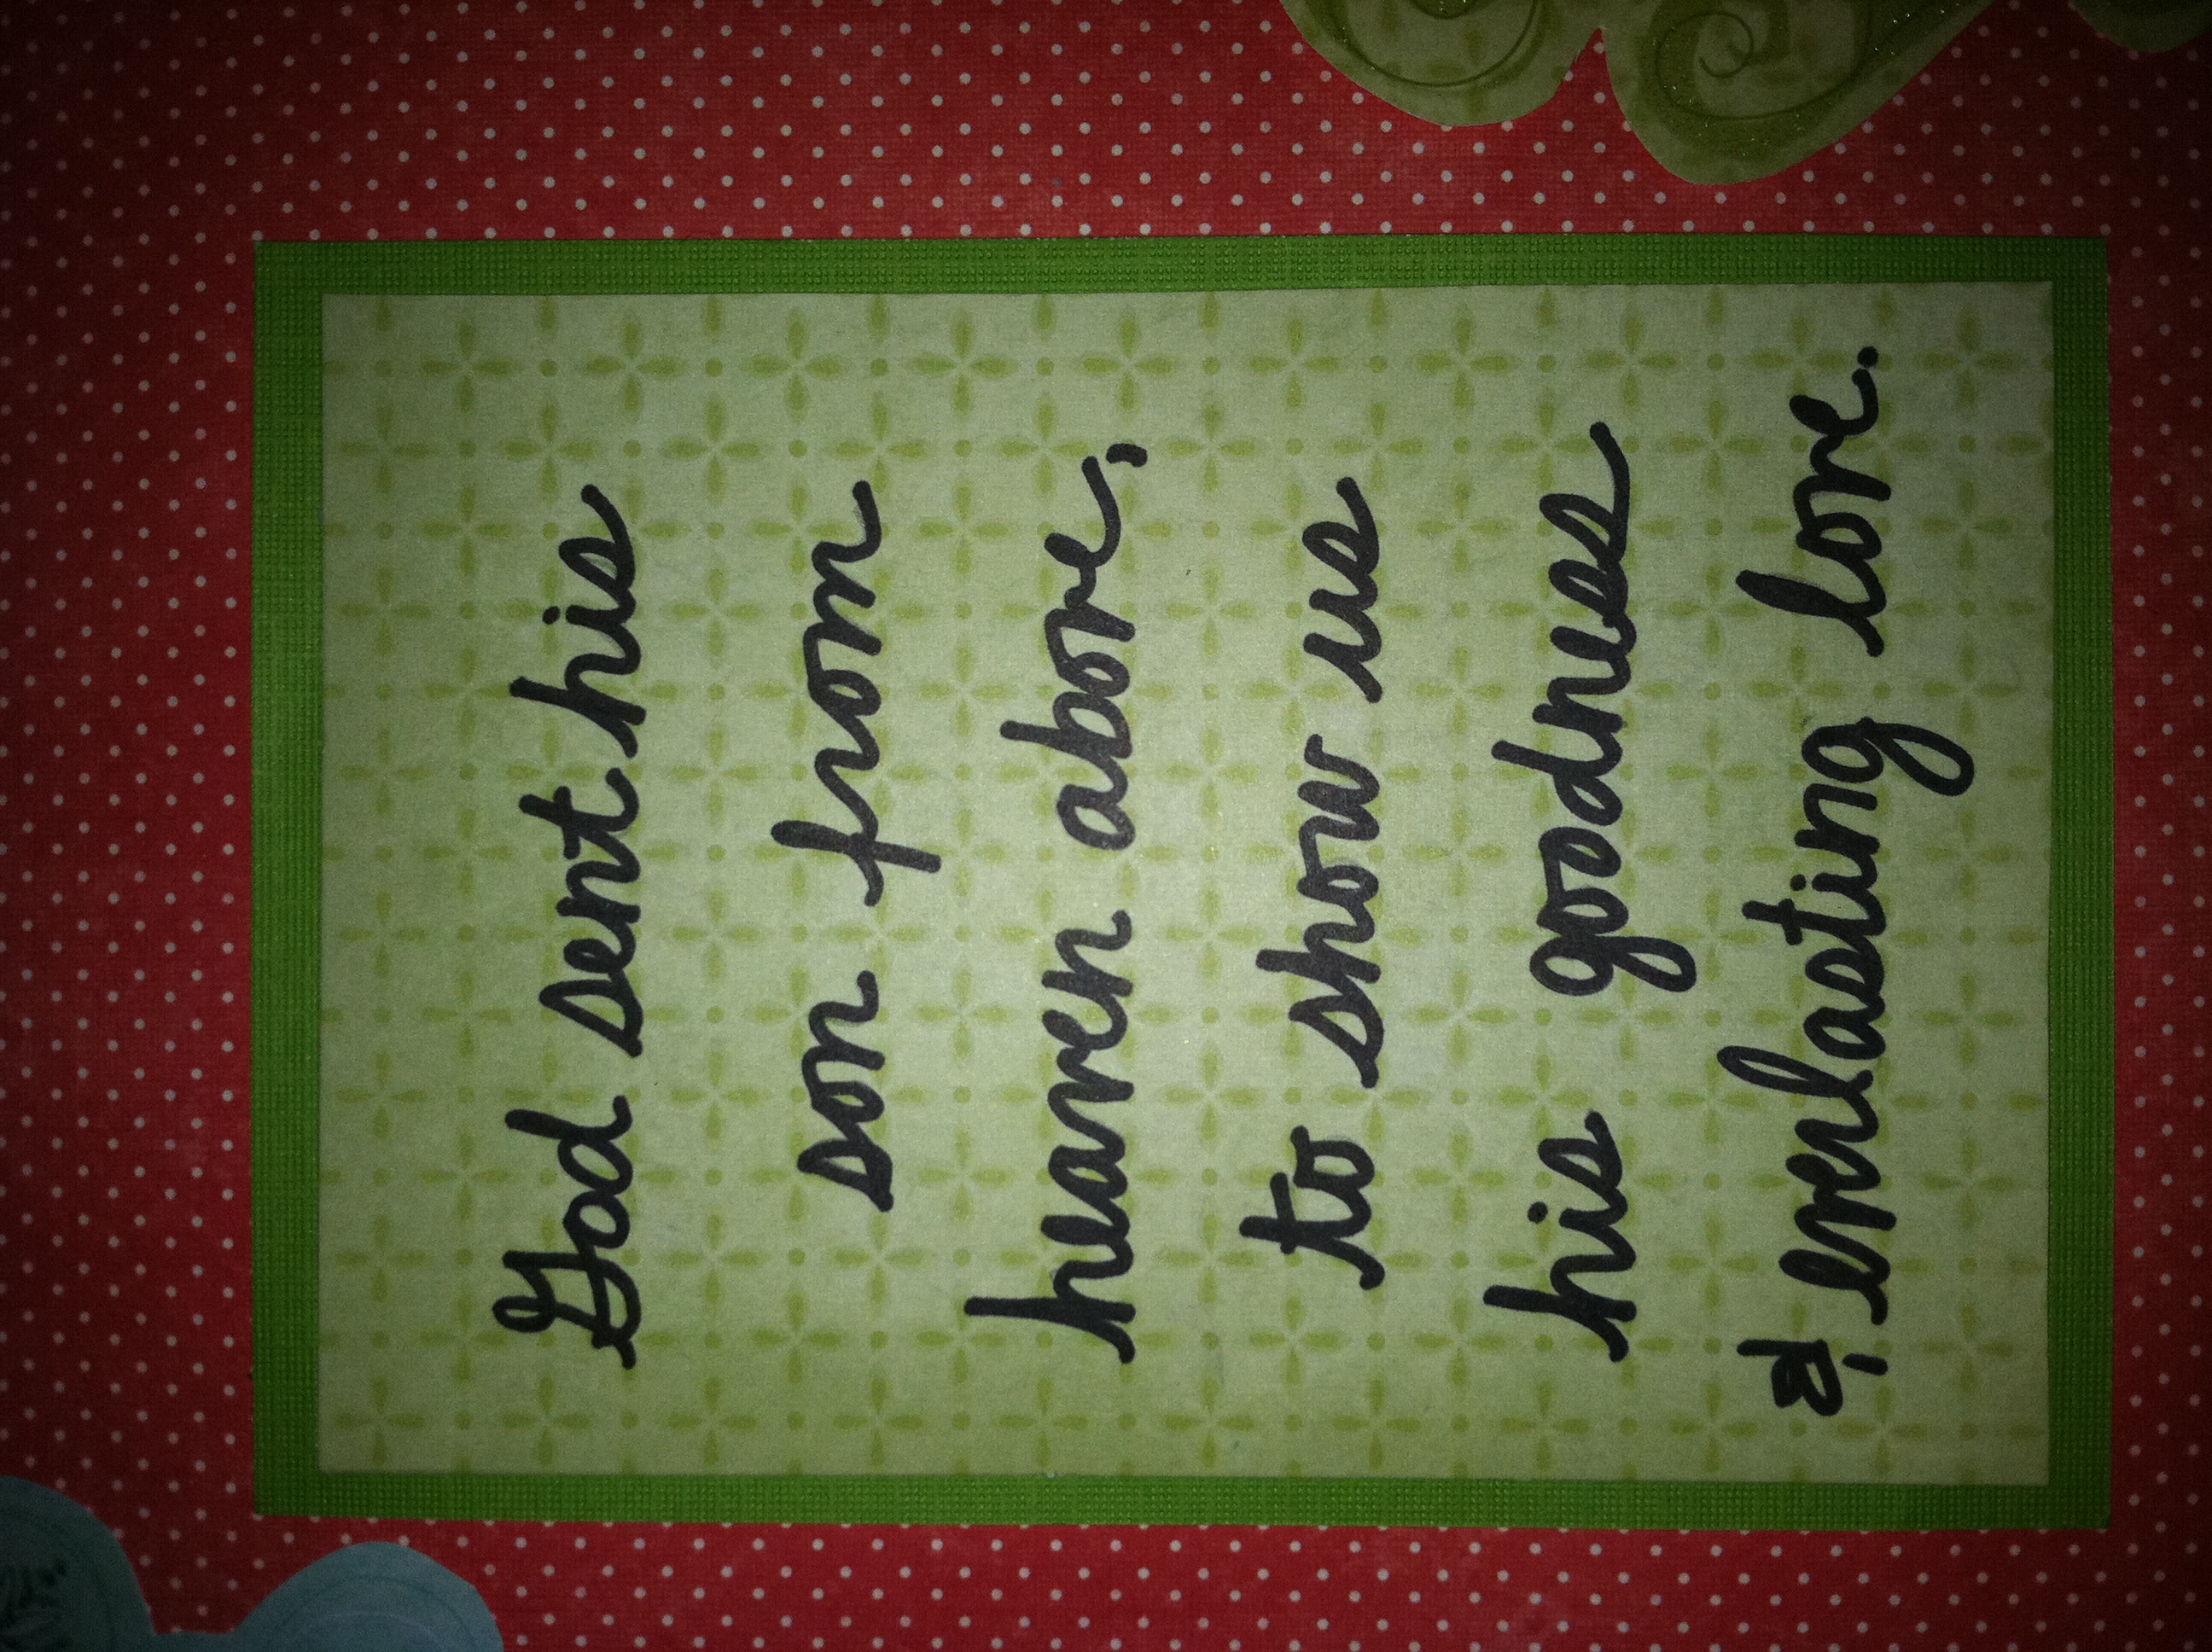 God sent his
son from
heaven above,
to show us
his goodness
& everlasting love.